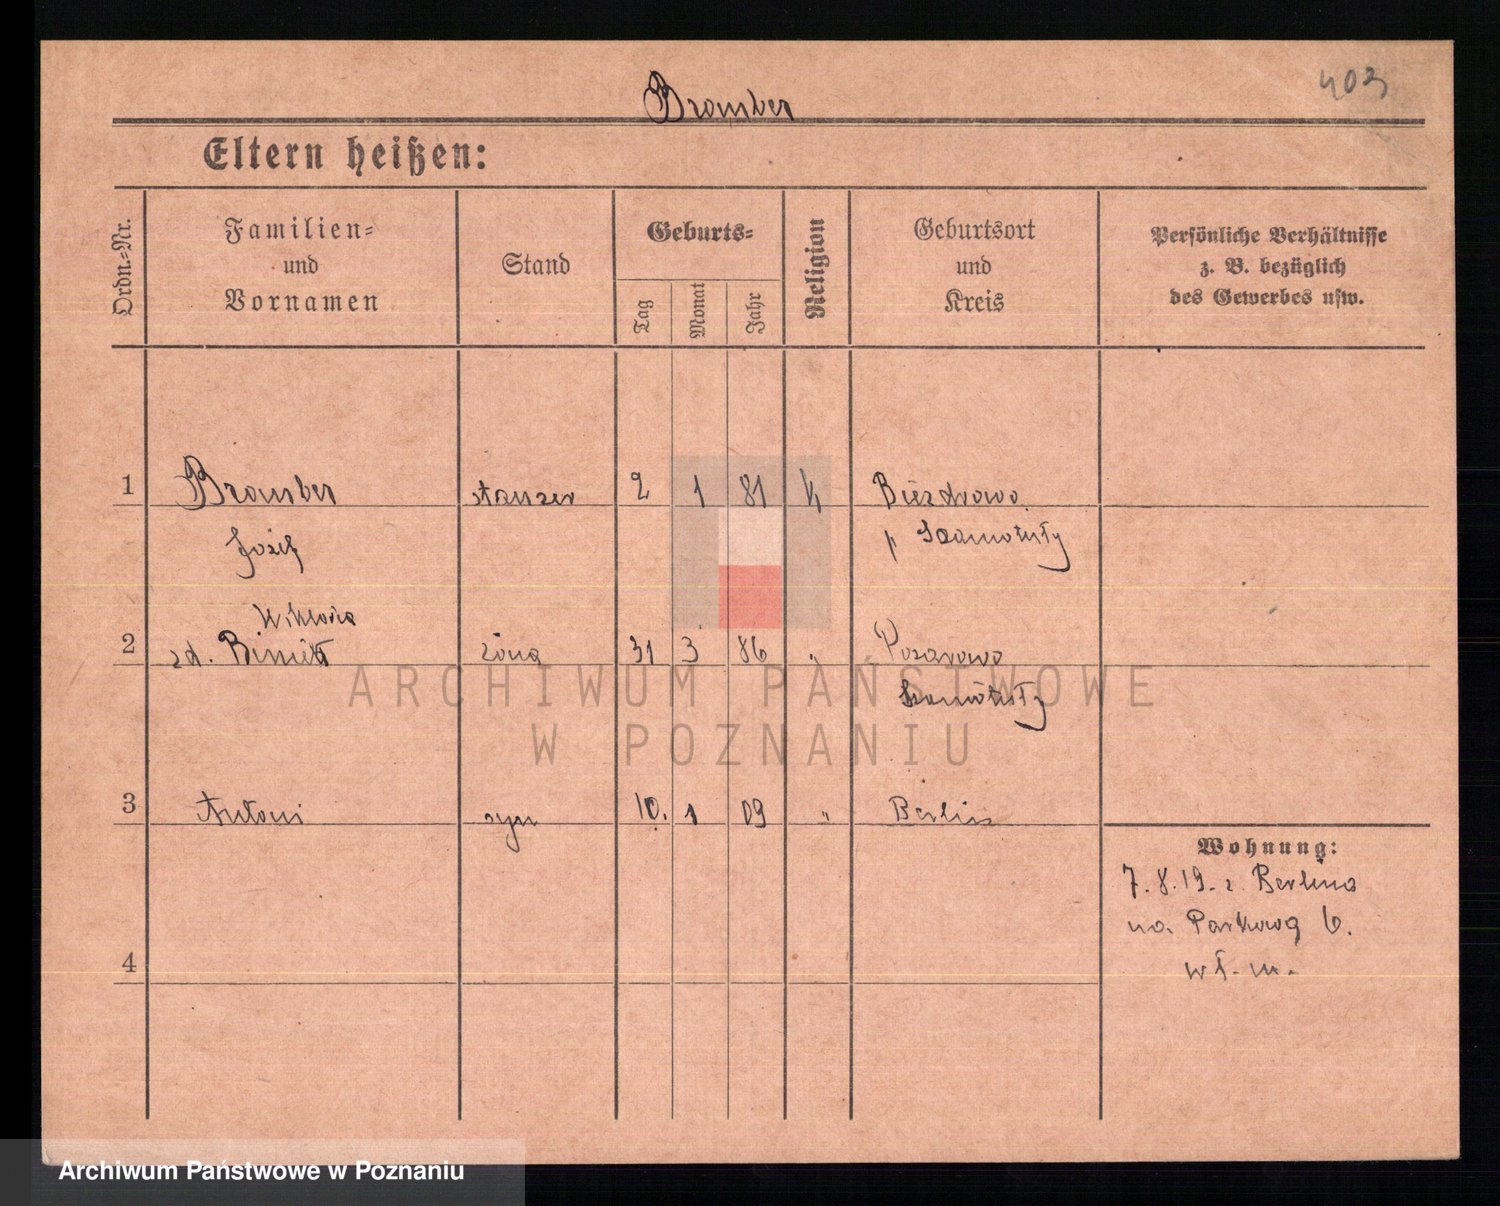 403
Bramber
Eltern heißen:
Ordn.-Nr.
Familien-
und
Vornamen
Stand
Geburts-
Tag
Monat
Jahr
Religion
Geburtsort
und
Kreis
Persönliche Verhältnisse
z. B. bezüglich
des Gewerbes usw.
1 Bramber 2 1 81 k Biezdrowo
Józef p Szamotuły
Wiktoria
2 zd. żona 31 3 86 " Pożarowo
Szamotuły
3 Antoni syn 10. 1 09 " Berlin
Wohnung:
7.8.19. z Berlina
na Parkową 6.
wł. m.
4
ARCHIWUM PAŃSTWOWE
W POZNANIU
Archiwum Państwowe w Poznaniu